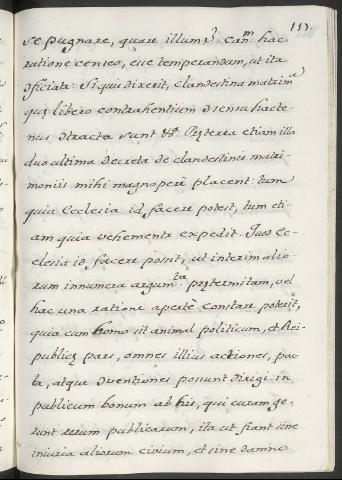 117.
repugnare, quare illum canm. hac
ratione censeo, esse temperandum, ut ita
dficiatr. Siquis dixerit, clandestina matrima
quę libero contrahentium dsensu hacte-
nus dtracta sunt &c. Pręterea etiam illa
duo ultima decreta de clandestinis matri-
moniis mihi magnopere placent: tum
quia Ecclesia id facere potest, tum eti-
am quia vehementer expedit. Quod Ec-
clesia id facere possit, ut interim alio-
rum innumera argumta. pręstermitam, vel
hac una ratione apertè constare poterit,
quia cum homo sit animal politicum, et Rei-
publicę pars, omnes illius actiones, pac-
ta, atque dventiones possunt dirigi in
publicum bonum ab his, qui curam ge-
runt rerum publicarum, ita ut fiant sine
iniuria aliorum civium, et sine damno